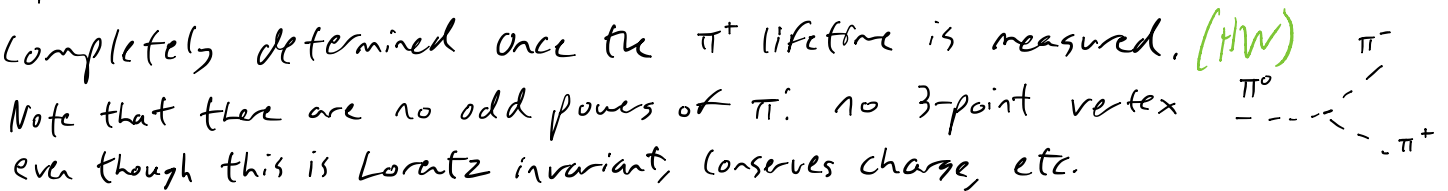 completely determined once the π⁺ lifetime is measured. (HW)
π⁻
π⁰
Note that there are no odd powers of π: no 3-point vertex
π⁺
even though this is Lorentz invariant, conserves charge, etc.